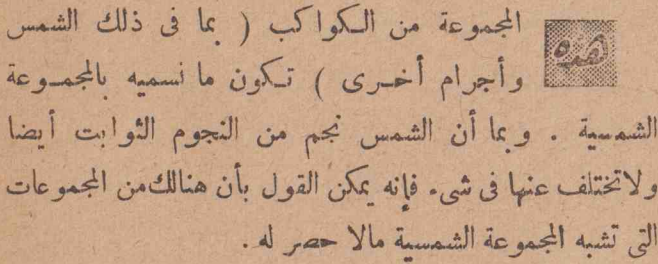 هذه المجموعة من الكواكب ( بما فى ذلك الشمس
وأجرام أخرى ) تكون ما نسميه بالمجموعة
الشمسية . وبما أن الشمس نجم من النجوم الثوابت أيضا
ولا تختلف عنها فى شىء فإنه يمكن القول بأن هنالك من المجموعات
التى تشبه المجموعة الشمسية مالا حصر له .